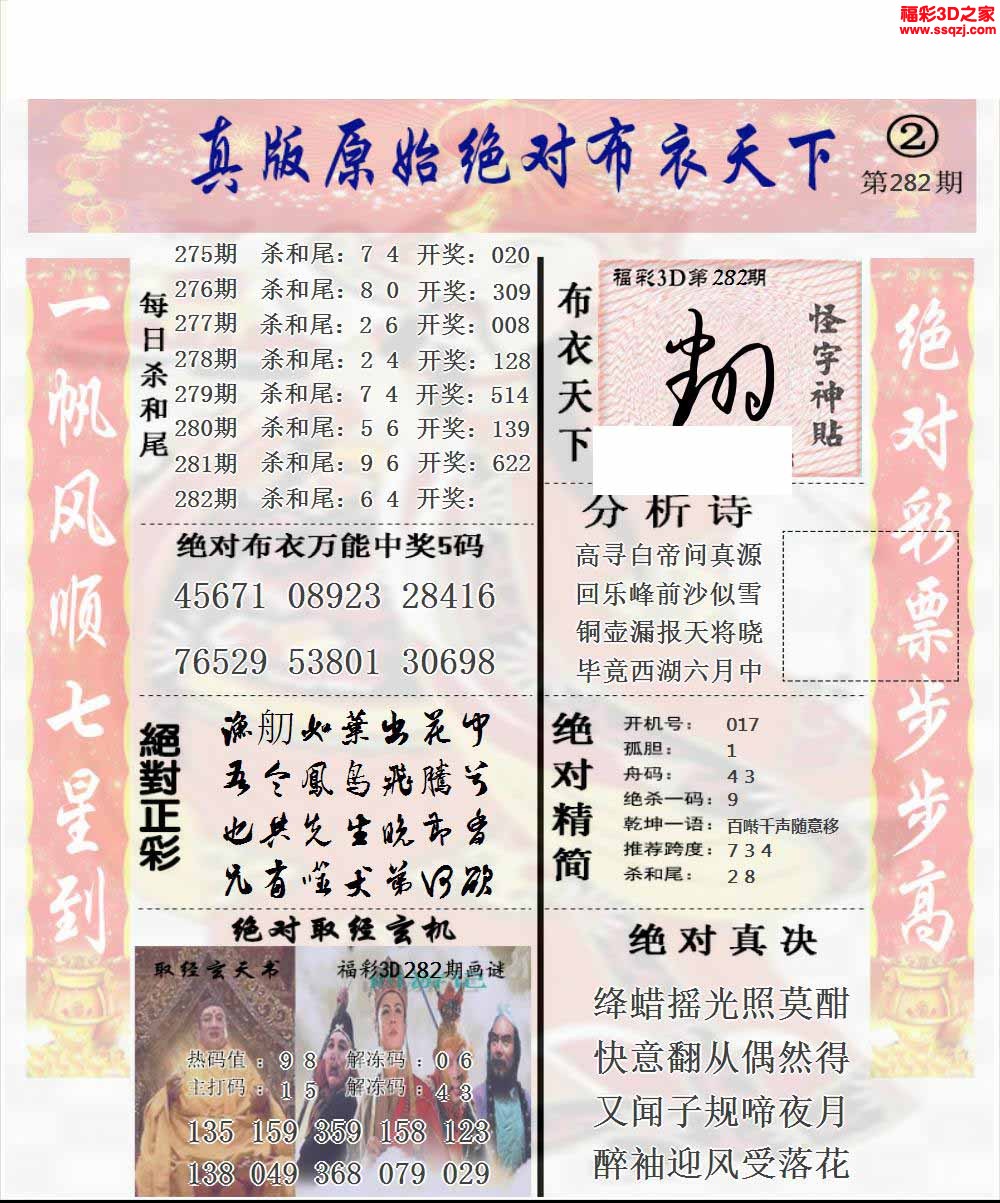 福彩3D之家
www.ssqzj.com
真版原始绝对布衣天下
②
第282期
一帆风顺七星到
每日杀和尾
275期 杀和尾：7 4 开奖：020
276期 杀和尾：8 0 开奖：309
277期 杀和尾：2 6 开奖：008
278期 杀和尾：2 4 开奖：128
279期 杀和尾：7 4 开奖：514
280期 杀和尾：5 6 开奖：139
281期 杀和尾：9 6 开奖：622
282期 杀和尾：6 4 开奖：
绝对布衣万能中奖5码
45671 08923 28416
76529 53801 30698
絕對正彩
渔舠如葉出花中
吾令鳳鸟飛騰兮
也共先生晚市香
兄有噬犬弟何欲
绝对取经玄机
取经玄天书
福彩3D282期画谜
热码值：9 8 解冻码：0 6
主打码：1 5 解冻码：4 3
135 159 359 158 123
138 049 368 079 029
布衣天下
福彩3D第282期
怪字神贴
分析诗
高寻白帝问真源
回乐峰前沙似雪
铜壶漏报天将晓
毕竟西湖六月中
绝对精简
开机号： 017
孤胆： 1
舟码： 4 3
绝杀一码：9
乾坤一语：百啭千声随意移
推荐跨度：7 3 4
杀和尾： 2 8
绝对真决
绛蜡摇光照莫酣
快意翻从偶然得
又闻子规啼夜月
醉袖迎风受落花
绝对彩票步步高